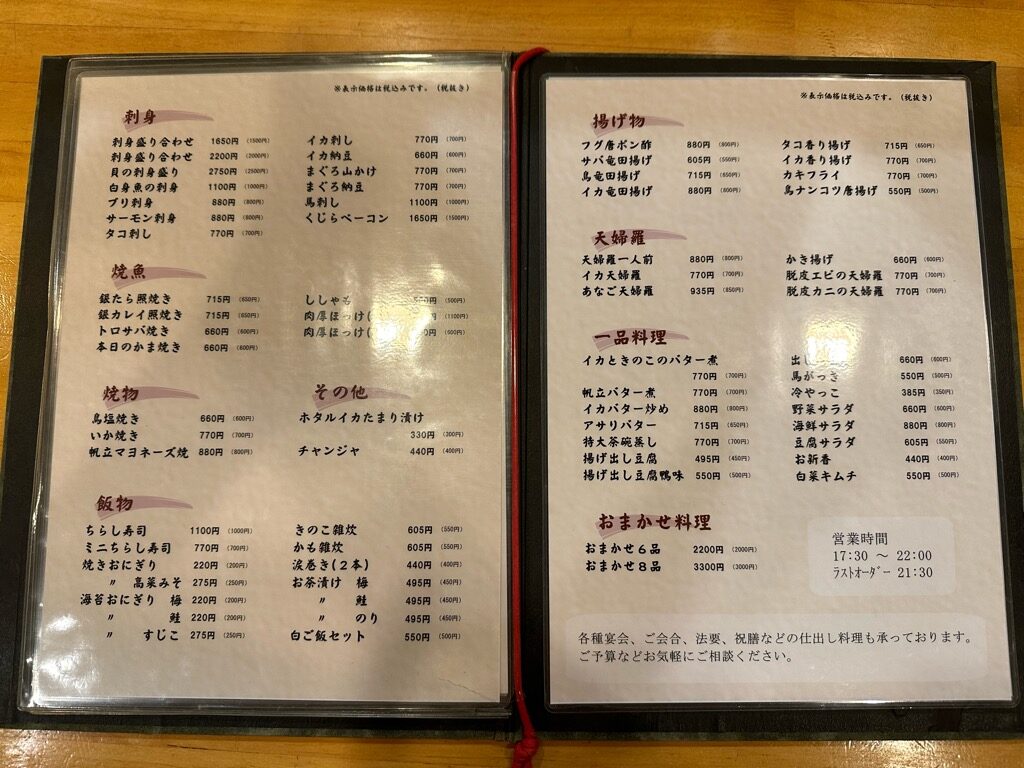 ※表示価格は税込みです。(税抜き)
刺身
刺身盛り合わせ 1650円 (1500円)
刺身盛り合わせ 2200円 (2000円)
貝の刺身盛り 2750円 (2500円)
白身魚の刺身 1100円 (1000円)
ブリ刺身 880円 (800円)
サーモン刺身 880円 (800円)
タコ刺し 770円 (700円)
イカ刺し 770円 (700円)
イカ納豆 660円 (600円)
まぐろ山かけ 770円 (700円)
まぐろ納豆 770円 (700円)
馬刺し 1100円 (1000円)
くじらベーコン 1650円 (1500円)
焼魚
銀たら照焼き 715円 (650円)
銀カレイ照焼き 715円 (650円)
トロサバ焼き 660円 (600円)
本日のかま焼き 660円 (600円)
ししゃも (500円)
肉厚ほっけ( (1100円)
肉厚ほっけ( (500円)
焼物
鳥塩焼き 660円 (600円)
いか焼き 770円 (700円)
帆立マヨネーズ焼 880円 (800円)
その他
ホタルイカたまり漬け
330円 (300円)
チャンジャ 440円 (400円)
飯物
ちらし寿司 1100円 (1000円)
ミニちらし寿司 770円 (700円)
焼きおにぎり 220円 (200円)
〃 高菜みそ 275円 (250円)
海苔おにぎり 梅 220円 (200円)
〃 鮭 220円 (200円)
〃 すじこ 275円 (250円)
きのこ雑炊 605円 (550円)
かも雑炊 605円 (550円)
涙巻き(2本) 440円 (400円)
お茶漬け 梅 495円 (450円)
〃 鮭 495円 (450円)
〃 のり 495円 (450円)
白ご飯セット 550円 (500円)
※表示価格は税込みです。(税抜き)
揚げ物
フグ唐ポン酢 880円 (800円)
サバ竜田揚げ 605円 (550円)
鳥竜田揚げ 715円 (650円)
イカ竜田揚げ 880円 (800円)
タコ香り揚げ 715円 (650円)
イカ香り揚げ 770円 (700円)
カキフライ 770円 (700円)
鳥ナンコツ唐揚げ 550円 (500円)
天婦羅
天婦羅一人前 880円 (800円)
イカ天婦羅 770円 (700円)
あなご天婦羅 935円 (850円)
かき揚げ 660円 (600円)
脱皮エビの天婦羅 770円 (700円)
脱皮カニの天婦羅 770円 (700円)
一品料理
イカときのこのバター煮
770円 (700円)
帆立バター煮 770円 (700円)
イカバター炒め 880円 (800円)
アサリバター 715円 (650円)
特大茶碗蒸し 770円 (700円)
揚げ出し豆腐 495円 (450円)
揚げ出し豆腐鴨味 550円 (500円)
出し 660円 (600円)
馬がっき 550円 (500円)
冷やっこ 385円 (350円)
野菜サラダ 660円 (600円)
海鮮サラダ 880円 (800円)
豆腐サラダ 605円 (550円)
お新香 440円 (400円)
白菜キムチ 550円 (500円)
おまかせ料理
おまかせ6品 2200円 (2000円)
おまかせ8品 3300円 (3000円)
営業時間
17:30 ～ 22:00
ﾗｽﾄｵｰﾀﾞｰ 21:30
各種宴会、ご会合、法要、祝膳などの仕出し料理も承っております。
ご予算などお気軽にご相談ください。